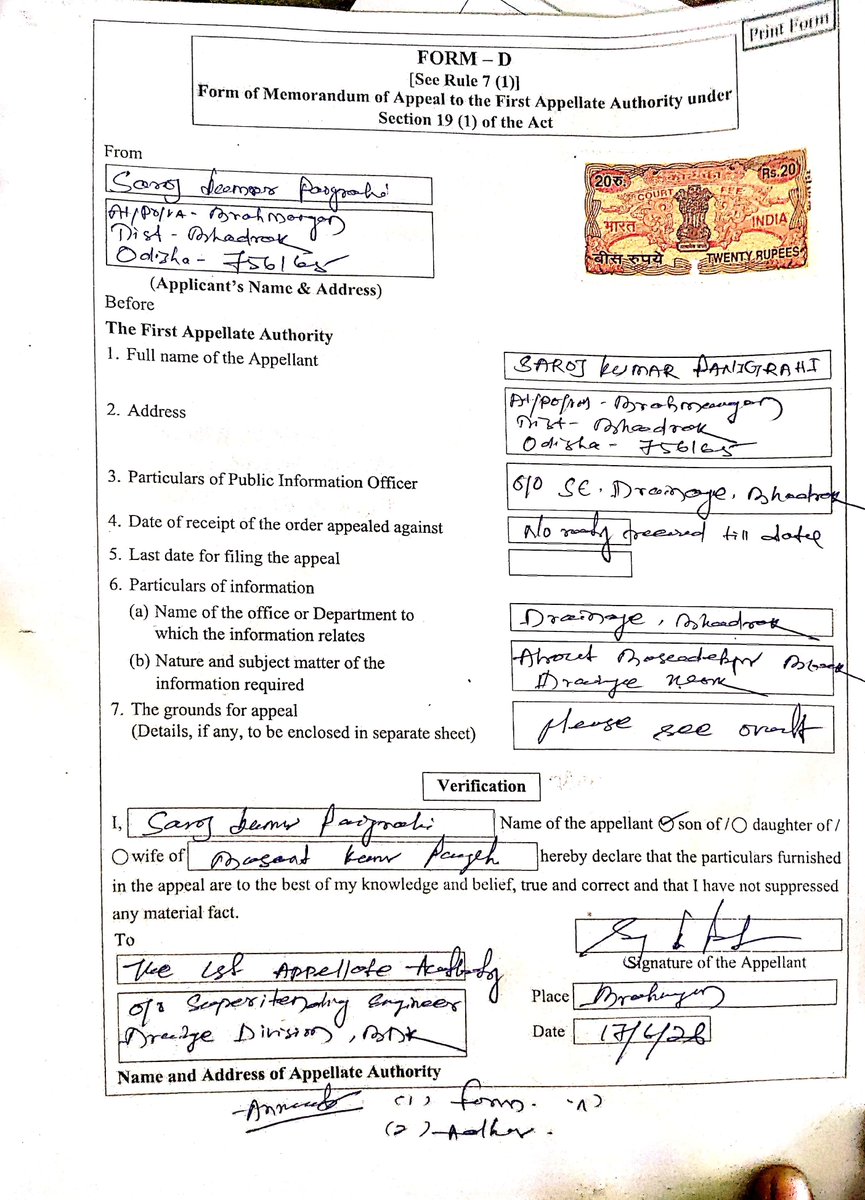 Print Form
FORM – D
[See Rule 7 (1)]
Form of Memorandum of Appeal to the First Appellate Authority under
Section 19 (1) of the Act
From
Saroj Kumar Panigrahi
At/PO/VA - Brahmangan
Dist - Bhadrak
Odisha - 756165
(Applicant's Name & Address)
20रु. Rs.20
COURT FEE
भारत INDIA
बीस रुपये TWENTY RUPEES
Before
The First Appellate Authority
1. Full name of the Appellant
SAROJ KUMAR PANIGRAHI
2. Address
Dist - Bhadrak
Odisha - 756165
3. Particulars of Public Information Officer
O/O SE, Drainage, Bhadrak
4. Date of receipt of the order appealed against
No received till date
5. Last date for filing the appeal
6. Particulars of information
(a) Name of the office or Department to
which the information relates
Drainage, Bhadrak
(b) Nature and subject matter of the
information required
About Block
Drainge Work
7. The grounds for appeal
(Details, if any, to be enclosed in separate sheet)
please see
Verification
I, Saroj Kumar Panigrahi Name of the appellant son of / daughter of /
wife of Basant Kumar hereby declare that the particulars furnished
in the appeal are to the best of my knowledge and belief, true and correct and that I have not suppressed
any material fact.
To
The 1st Appellate Authority
Signature of the Appellant
O/o Superitending Engineer
Drainge Division, BDK
Place
Date
Name and Address of Appellate Authority
(1) form - A
(2) Adhar.